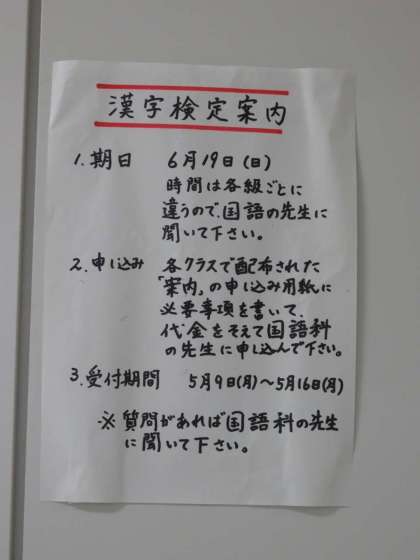 漢字検定案内
1. 期日 6月19日(日)
時間は各級ごとに
違うので、国語の先生に
聞いて下さい。
2. 申し込み 各クラスで配布された
「案内」の申し込み用紙に
必要事項を書いて、
代金をそえて国語科
の先生に申し込んで下さい。
3. 受付期間 5月9日(月)~5月16日(月)
※ 質問があれば国語科の先生
に聞いて下さい。